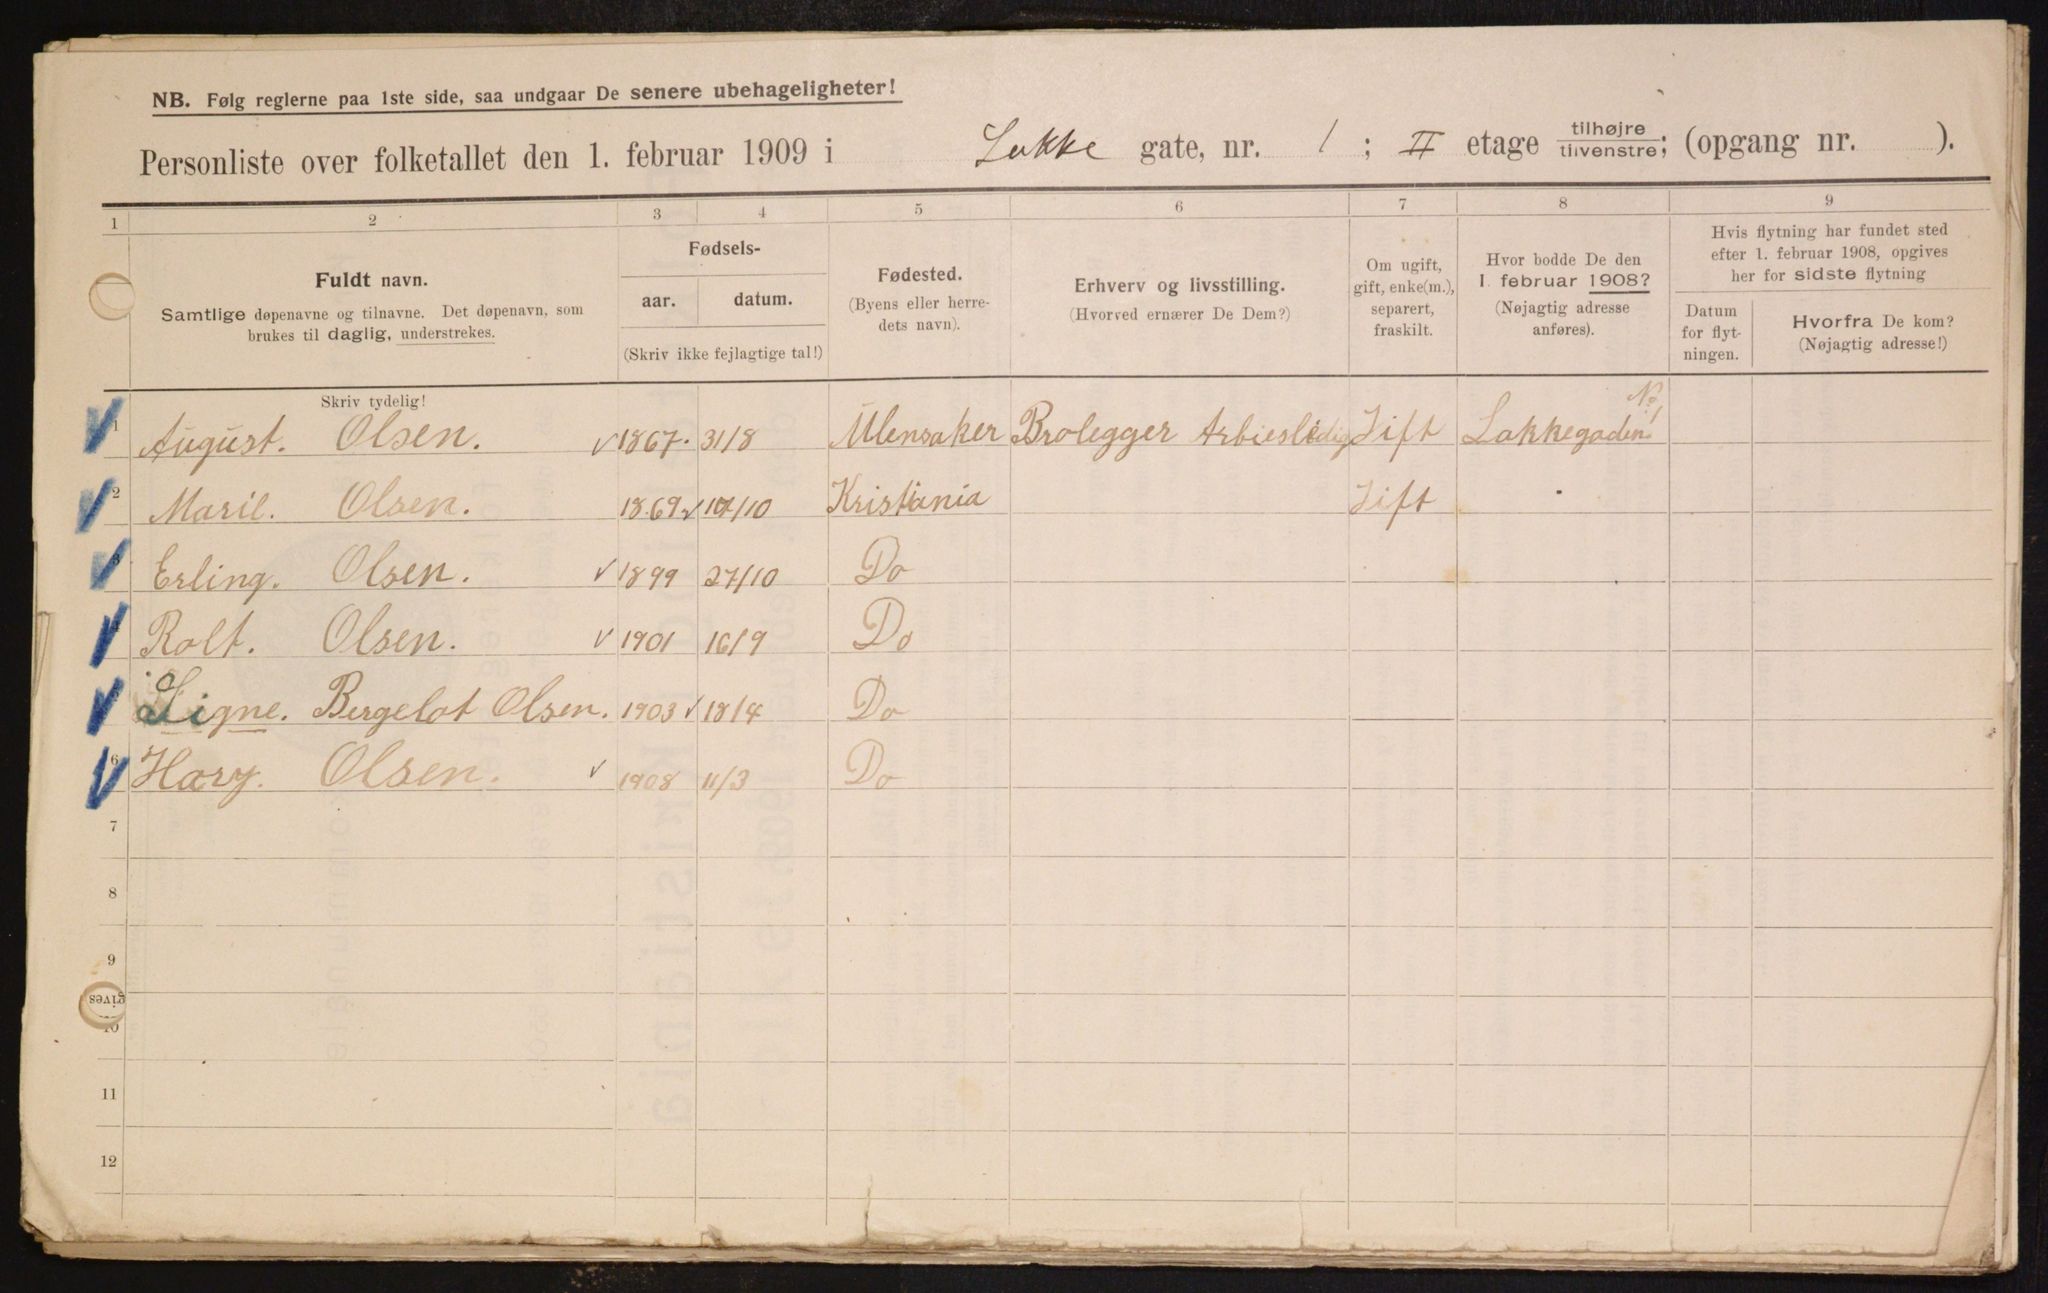 NB. Følg reglerne paa 1ste side, saa undgaar De senere ubehageligheter!
Personliste over folketallet den 1. februar 1909 i Lakke gate, nr. 1; II etage tilhøjre tilvenstre; (opgang nr. ).
1 2 3 4 5 6 7 8 9
Fuldt navn.
Samtlige døpenavne og tilnavne. Det døpenavn, som
brukes til daglig, understrekes.
Fødsels-
aar. datum.
(Skriv ikke fejlagtige tal!)
Fødested.
(Byens eller herre-
dets navn).
Erhverv og livsstilling.
(Hvorved ernærer De Dem?)
Om ugift,
gift, enke(m.),
separert,
fraskilt.
Hvor bodde De den
1. februar 1908?
(Nøjagtig adresse
anføres).
Hvis flytning har fundet sted
efter 1. februar 1908, opgives
her for sidste flytning
Datum
for flyt-
ningen.
Hvorfra De kom?
(Nøjagtig adresse!)
Skriv tydelig!
1 August. Olsen. 1867. 31/8 Ulensaker Brolegger Arbiesledig Gift Lakkegaden No 1
2 Maril. Olsen. 1869 17/10 Kristiania Gift
3 Erling. Olsen. 1899 27/10 Do
4 Rolf. Olsen. 1901 16/9 Do
5 Signe. Bergelot Olsen. 1903 18/4 Do
6 Hary. Olsen. 1908 11/3 Do
7
8
9
gives
10
11
12